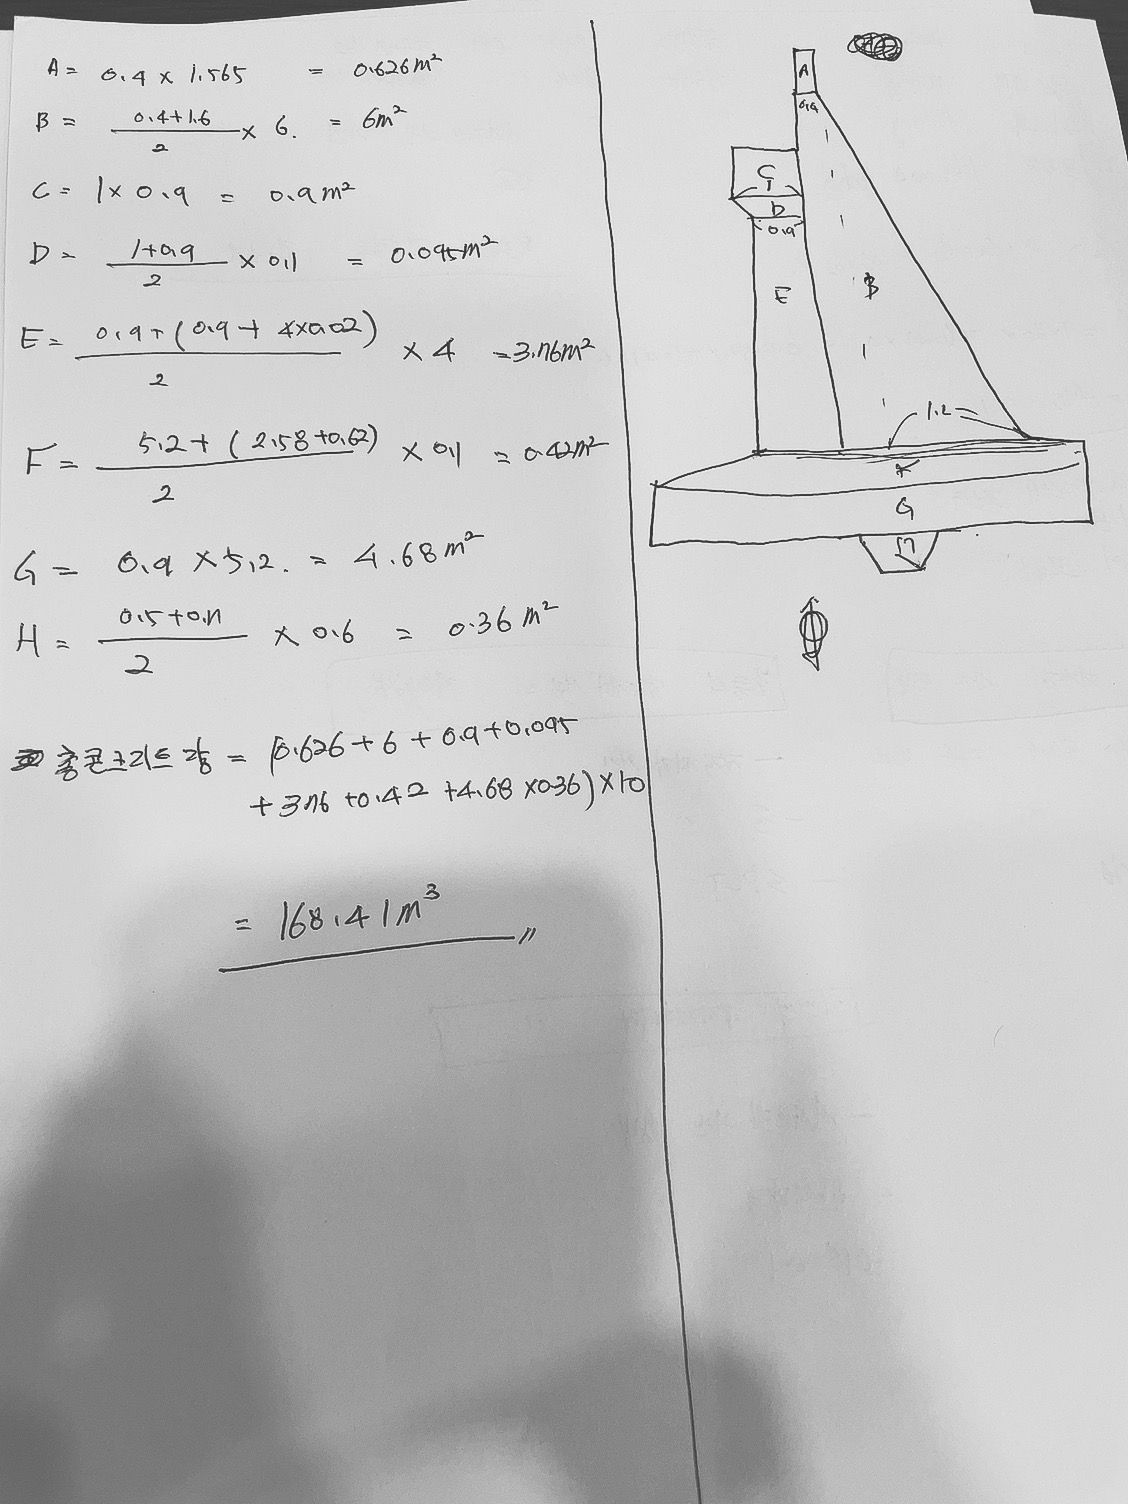 A = 0.4 × 1.565 = 0.626m²
B = (0.4+1.6)/2 × 6. = 6m²
C = 1 × 0.9 = 0.9m²
D = (1+0.9)/2 × 0.1 = 0.095m²
E = (0.9+(0.9+4×0.02))/2 × 4 = 3.76m²
F = (5.2+(2.58+0.62))/2 × 0.1 = 0.42m²
G = 0.9 × 5.2. = 4.68m²
H = (0.5+0.7)/2 × 0.6 = 0.36m²
총콘크리트량 = (0.626+6+0.9+0.095
+3.76+0.42+4.68×0.36)×10
= 168.41m³
A
0.4
C
1
D
0.9
E
B
1.2
F
G